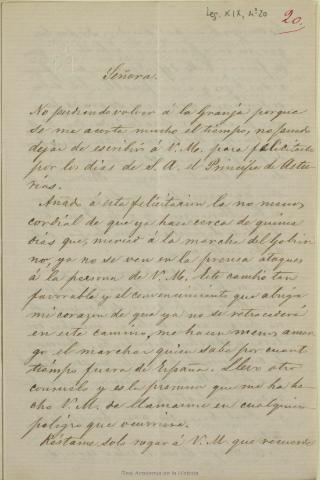 Leg. XIX, nº 20
20.
Señora.
No pudiendo volver á la Granja porque
se me acorta mucho el tiempo, no puedo
dejar de escribir á V. M. para felicitarla
por los dias de S. A. el Principe de Astu-
rias.
Añado á esta felicitacion la no menos
cordial de que ya hace cerca de quince
dias que, merced á la marcha del Gobier
no, ya no se ven en la prensa ataques
á la persona de V. M. Este cambio tan
favorable y el convencimiento que abriga
mi corazon de que ya no se retrocederá
en este camino, me hacen menos amar
go el marchar quien sabe por cuanto
tiempo fuera de España. Llevo otro
consuelo y es la promesa que me ha he
cho V. M. de llamarme en cualquier
peligro que ocurriera.
Réstame solo rogar á V. M. que recuerde
Real Academia de la Historia